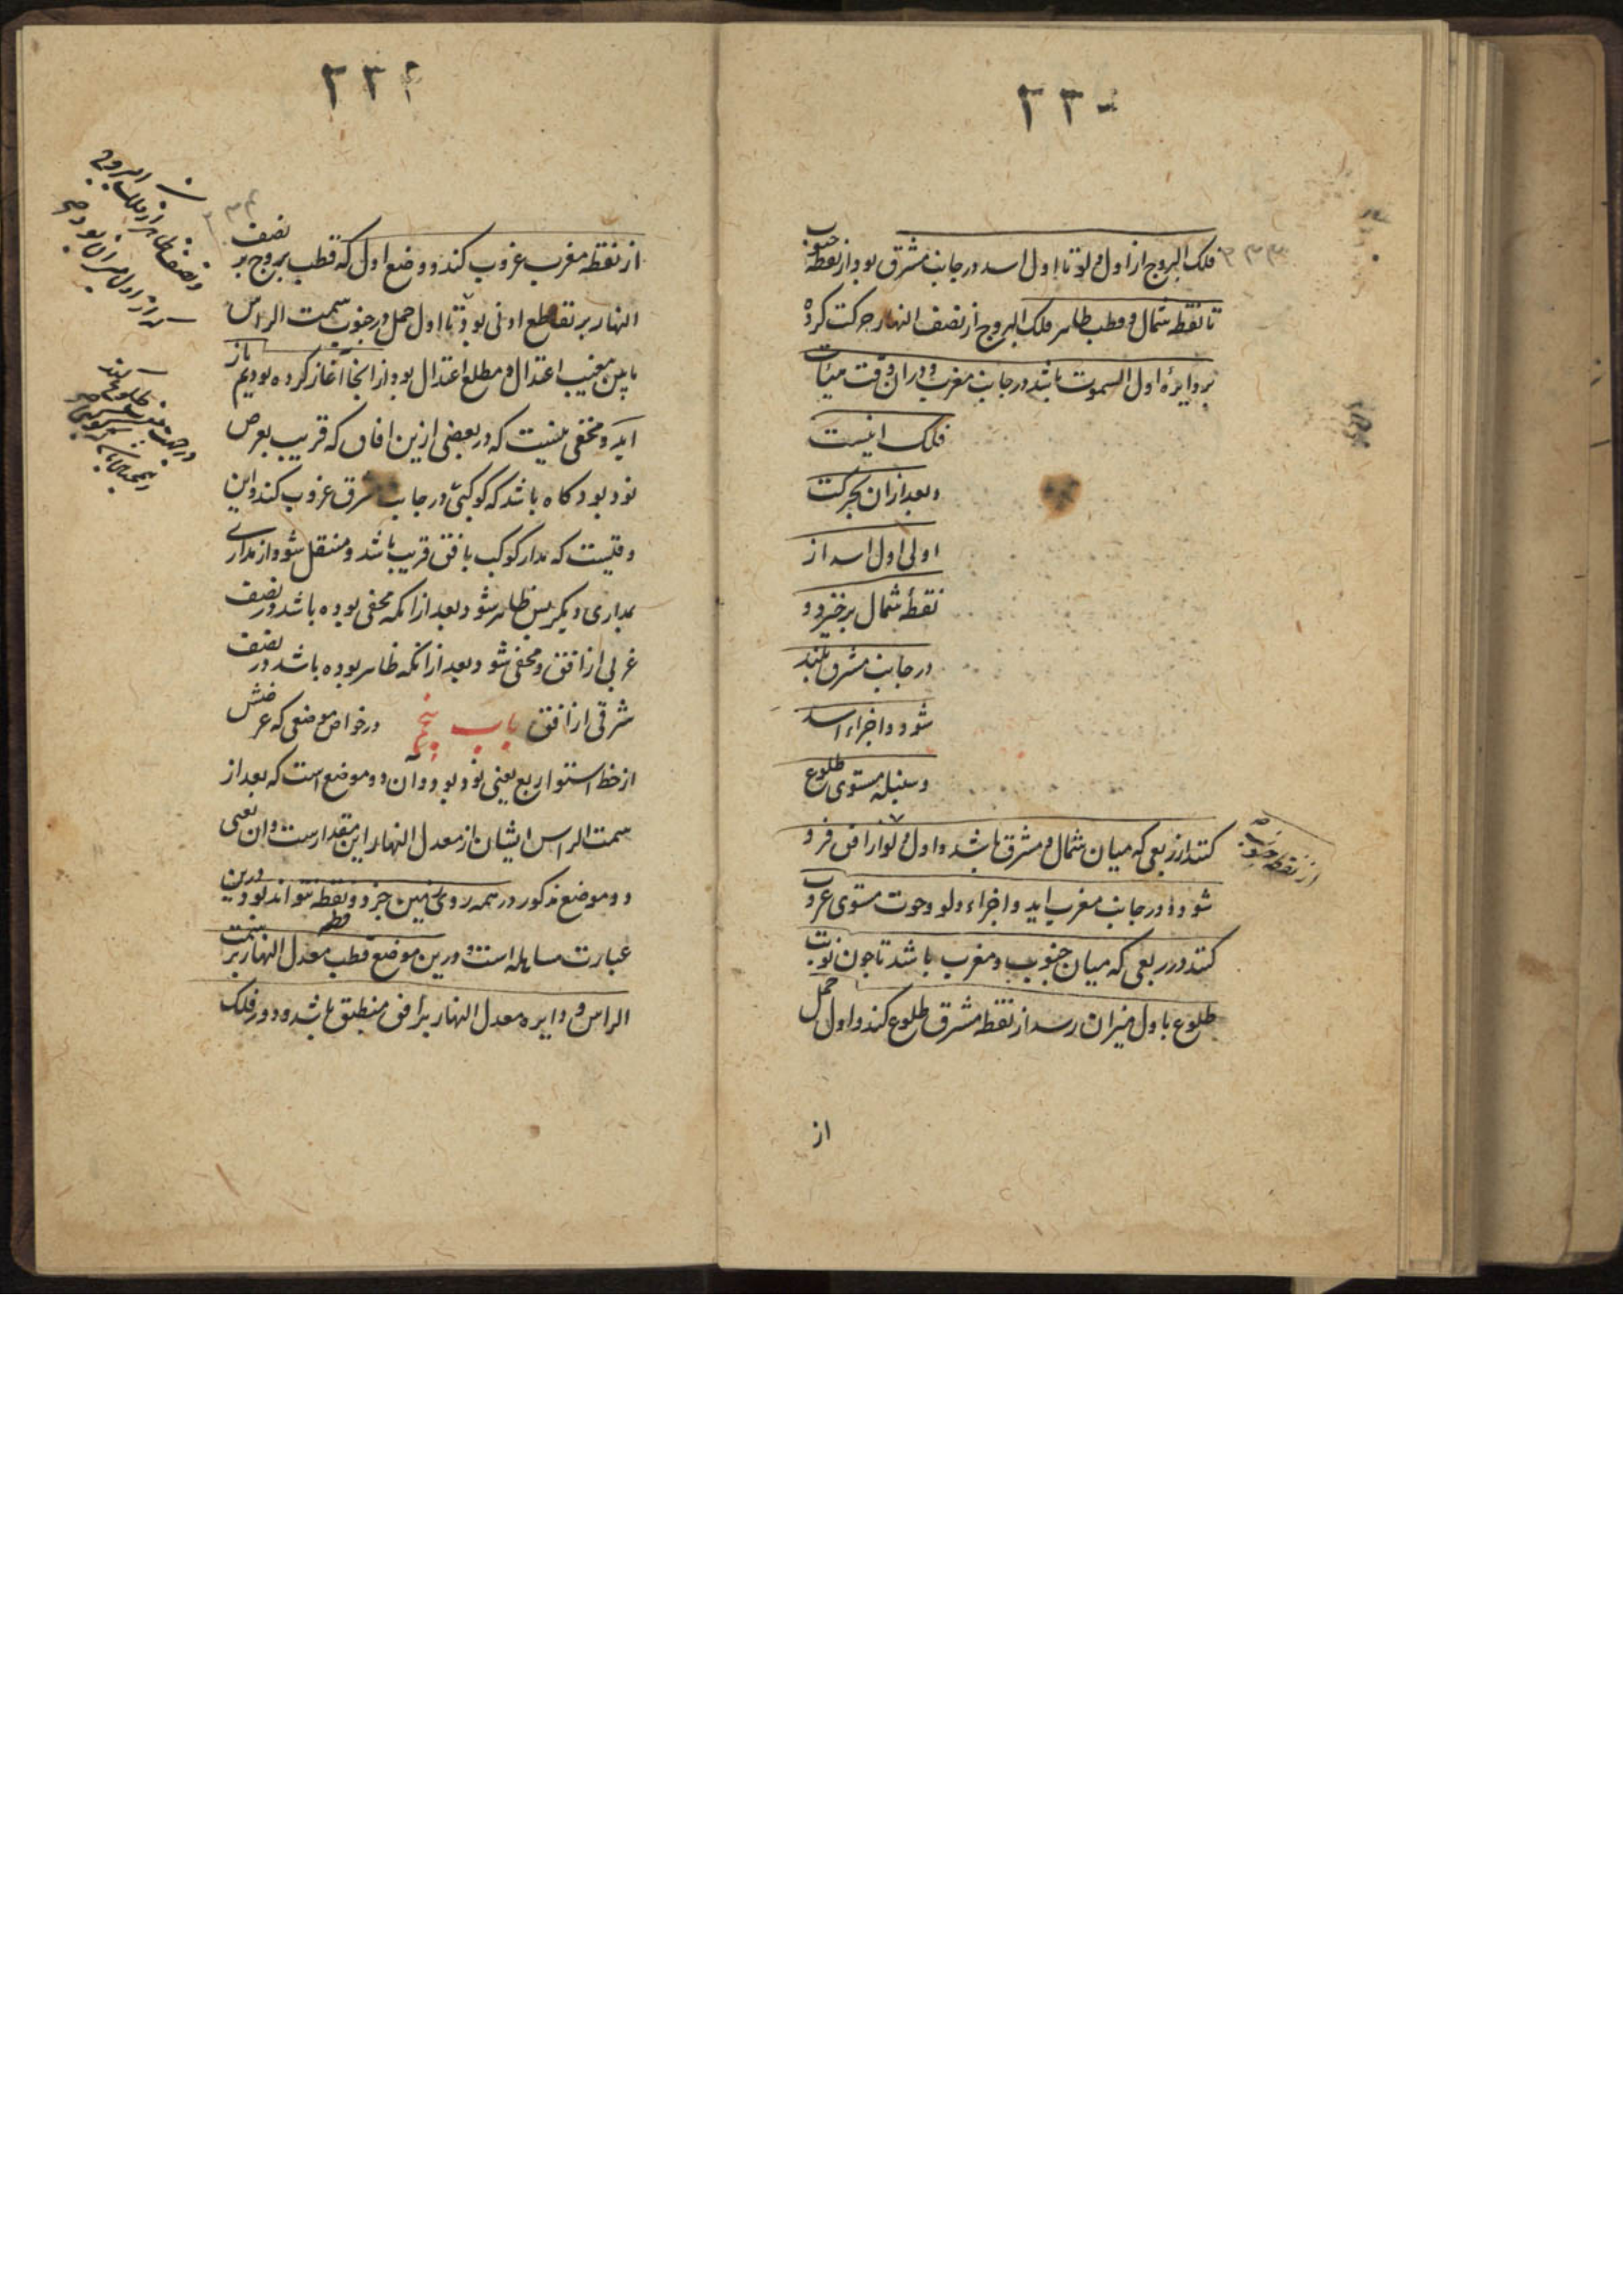 ۲۳۰
فلک البروج از اول دلو تا اول اسد در جانب مشرق بود از نقطه جنوب
تا نقطه شمال و قطب ظاهر فلک البروج از نصف النهار حرکت کرده
بر دایرهٔ اول السموت باشد در جانب مغرب و در ان وقت هیئات
فلک اینست
و بعد از ان بحرکت
اولی اول اسد از
نقطهٔ شمال برخیزد و
در جانب مشرق بلند
شود و اجزاء اسد
و سنبله مستوی طلوع
کنند از ربعی که میان شمال و مشرق باشد و اول دلو از افق فرو
از نقطه جنوب
شود و در جانب مغرب اید و اجزاء دلو و حوت مستوی غروب
کنند در ربعی که میان جنوب و مغرب باشد تا چون نوبت
طلوع باول میزان رسد از نقطه مشرق طلوع کند و اول حمل
از
۲۳۱
از نقطه مغرب غروب کند و وضع اول که قطب بروج بر نصف
النهار بر تقاطع اولی بود تا اول حمل در جنوب سمت الراس
مابین مغیب اعتدال و مطلع اعتدال بود از انجا اغاز کرده بودیم باز
اید و مخفی نیست که در بعضی ازین افاق که قریب بعرض
نود بود کاه باشد که کوکبی در جانب شرق غروب کند و این
وقتیست که مدار کوکب بافق قریب باشد و منتقل شود از مداری
بمداری دیکر پس ظاهر شود بعد از انکه مخفی بوده باشد در نصف
غربی از افق و مخفی شود بعد از انکه ظاهر بوده باشد در نصف
شرقی از افق باب پنجم در خواص موضعی که عرضش
از خط استوا ربع یعنی نود بود و ان دو موضع است که بعد از
سمت الراس ایشان از معدل النهار این مقدارست و ان یعنی
دو موضع مذکور در همه روی زمین جز دو نقطه نتواند بود و درین
عبارت مساهله است و درین موضع قطب معدل النهار بر سمت
الراس و دایره معدل النهار بر افق منطبق باشد و دور فلک
و نصف ظاهر از فلک البروج
که از اول میزان بود